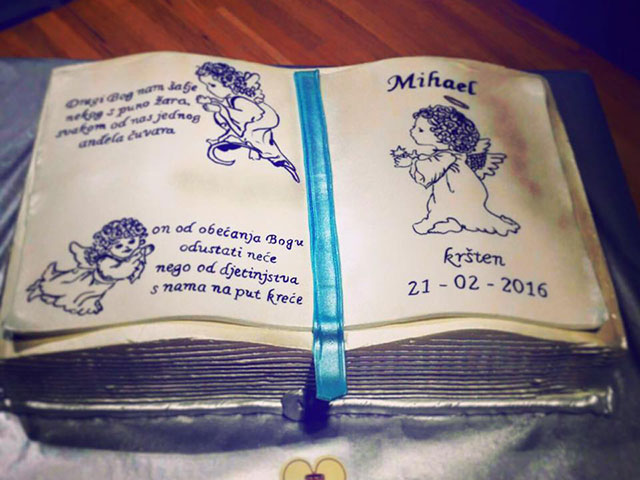 Dragi Bog nam šalje
nekog s puno žara,
svakom od nas jednog
anđela čuvara
on od obećanja Bogu
odustati neće
nego od djetinjstva
s nama na put kreće
Mihael
kršten
21 - 02 - 2016